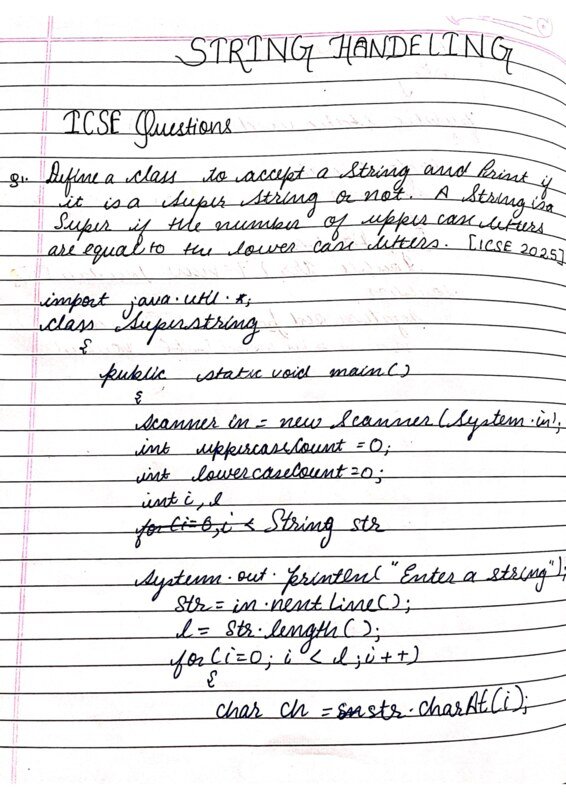 STRING HANDELING
ICSE Questions
Q1. Define a class to accept a String and Print if
it is a Super String or not. A String is a
Super if the number of upper case letters
are equal to the lower case letters. [ICSE 2025]
import java.util.*;
class Superstring
{
public static void main()
{
Scanner in = new Scanner(System.in);
int uppercaseCount = 0;
int lowercaseCount = 0;
int i, l
for(i=0,i < String str
System.out.println("Enter a string");
Str = in.nentLine();
l = Str.length();
for(i=0; i < l; i++)
{
char ch = str.charAt(i);